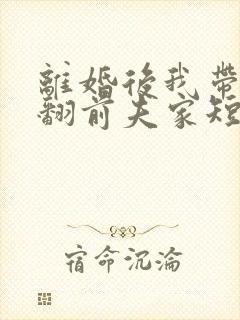 離婚後我帶
翻前夫家短
宿命沉淪